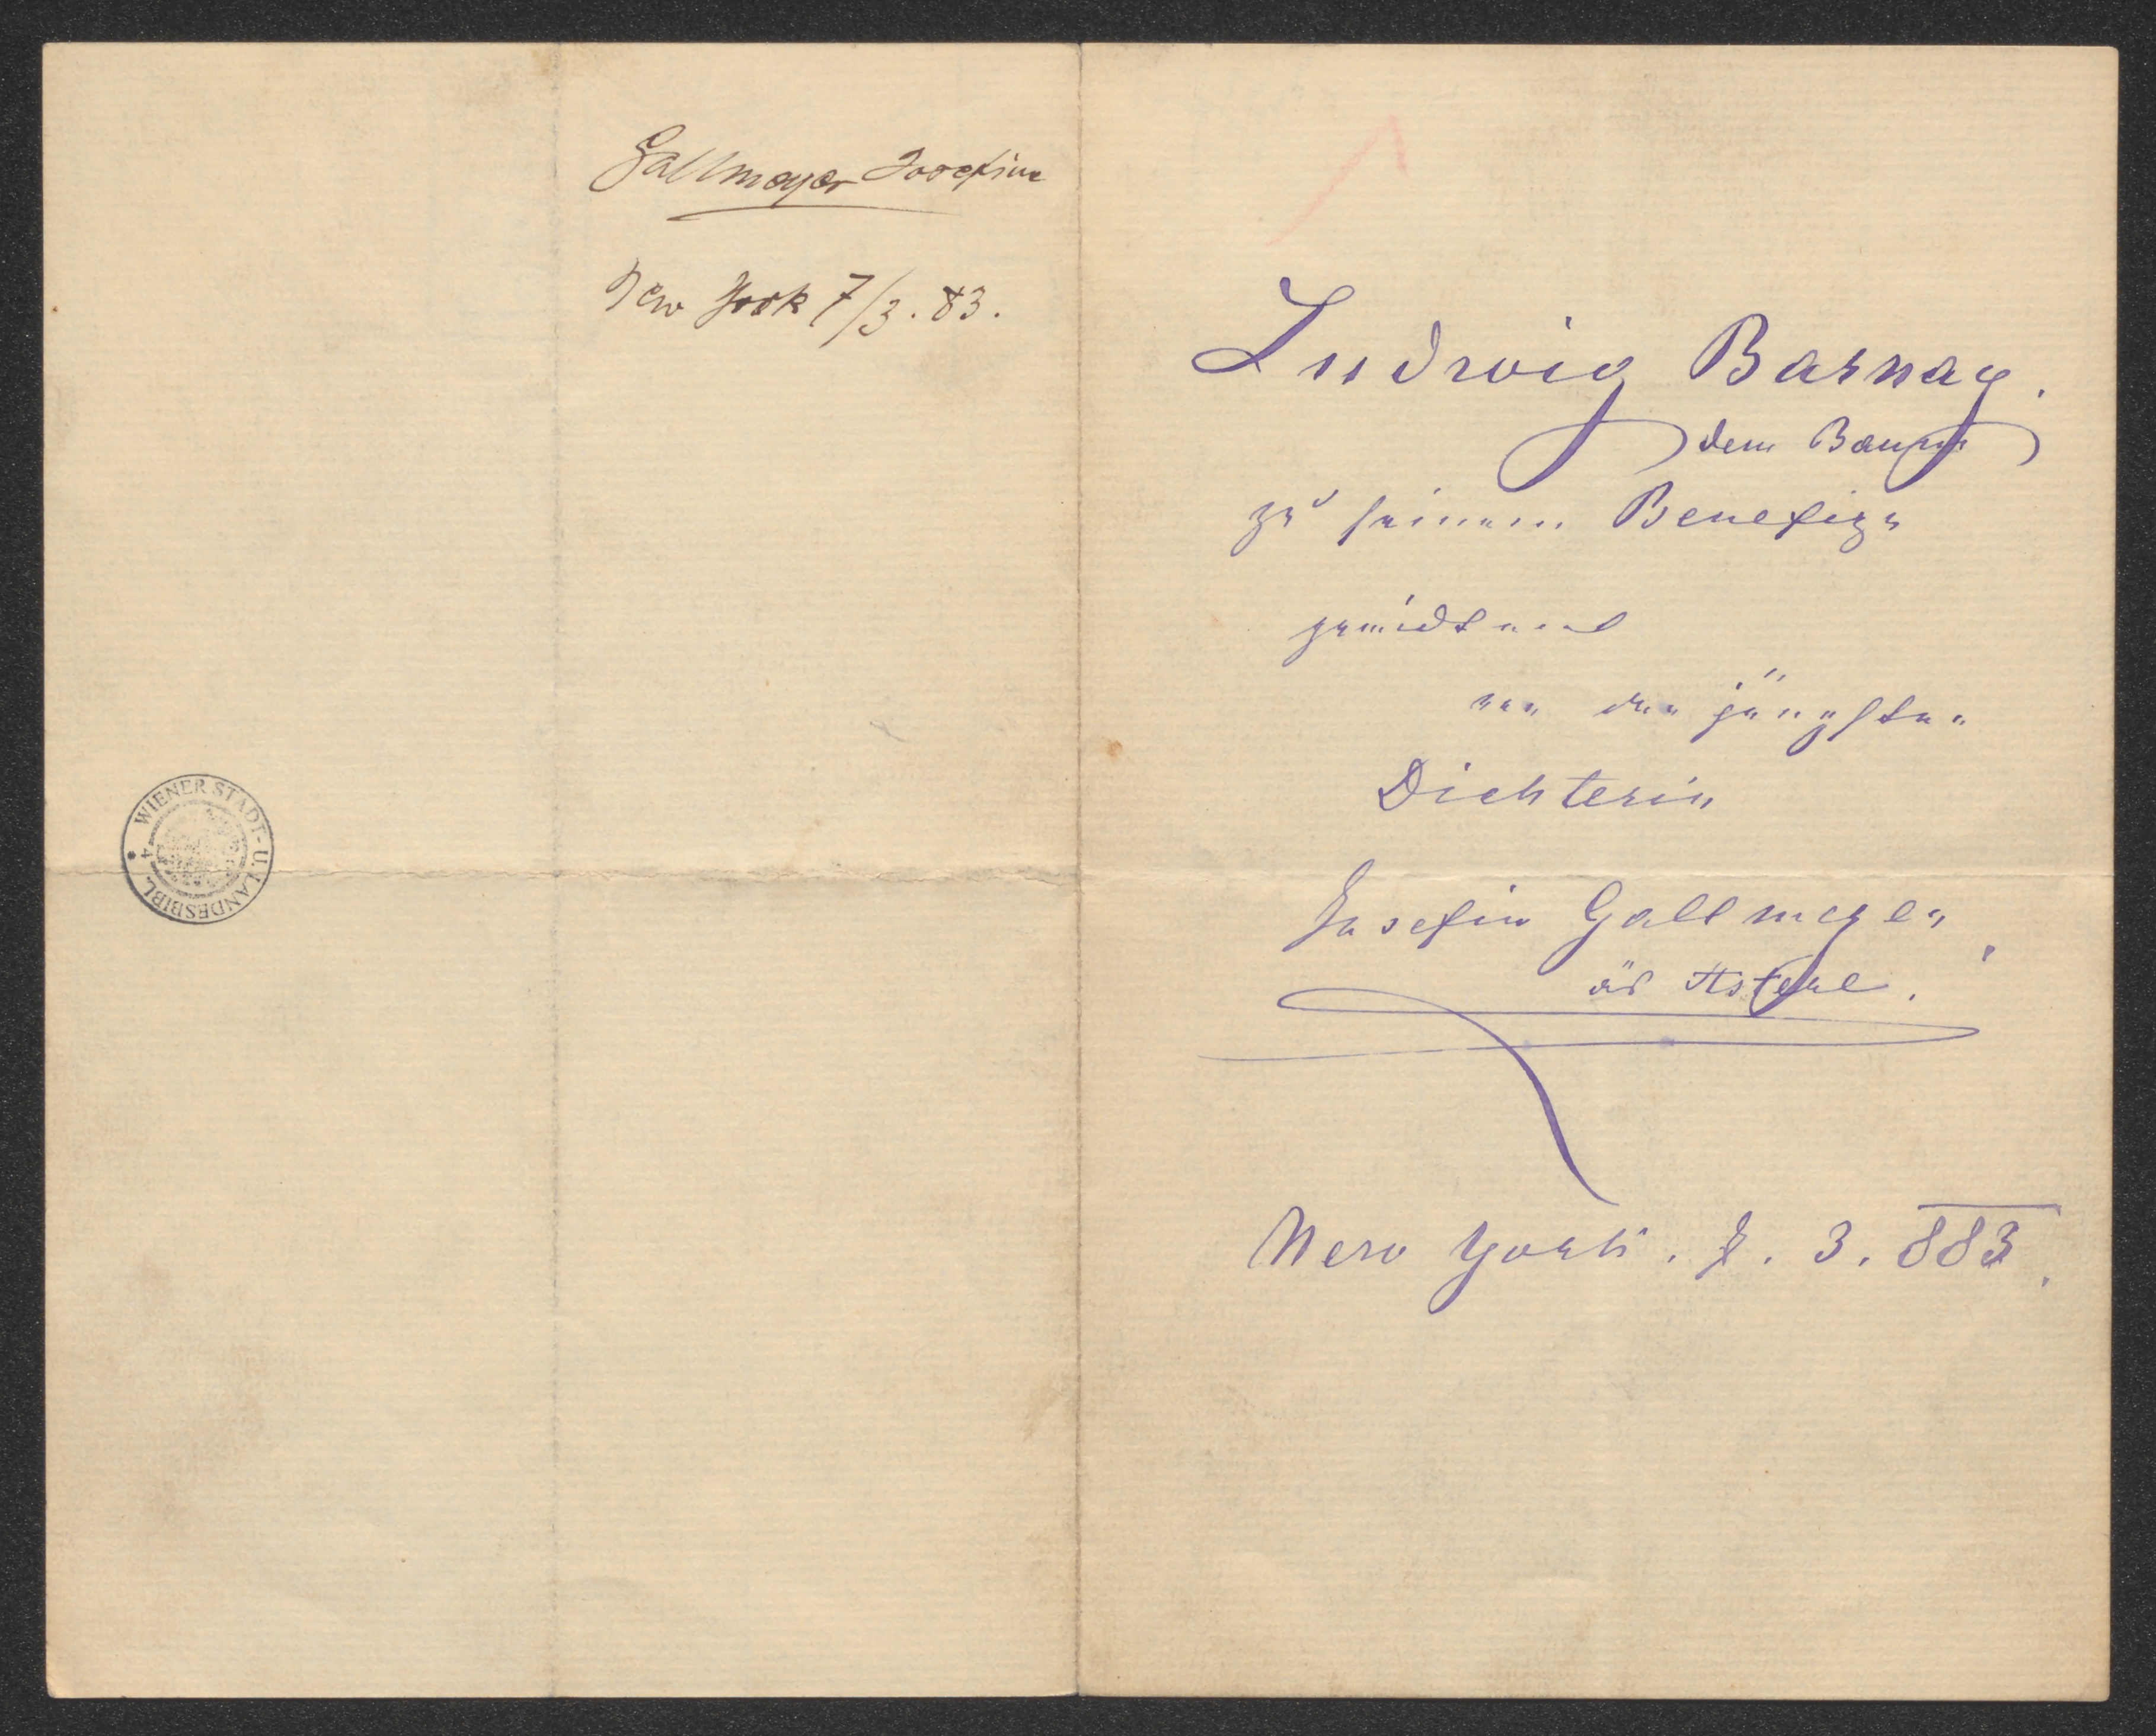 Gallmayer Josefine
New York 7/3. 83.
WIENER STADT- U. LANDESBIBL.
Ludwig Barnay.
dem
zu seinem Benefize
gewidmet
von der jüngsten
Dichterin
Josefin Gallmeyer
New York. 7. 3. 883.